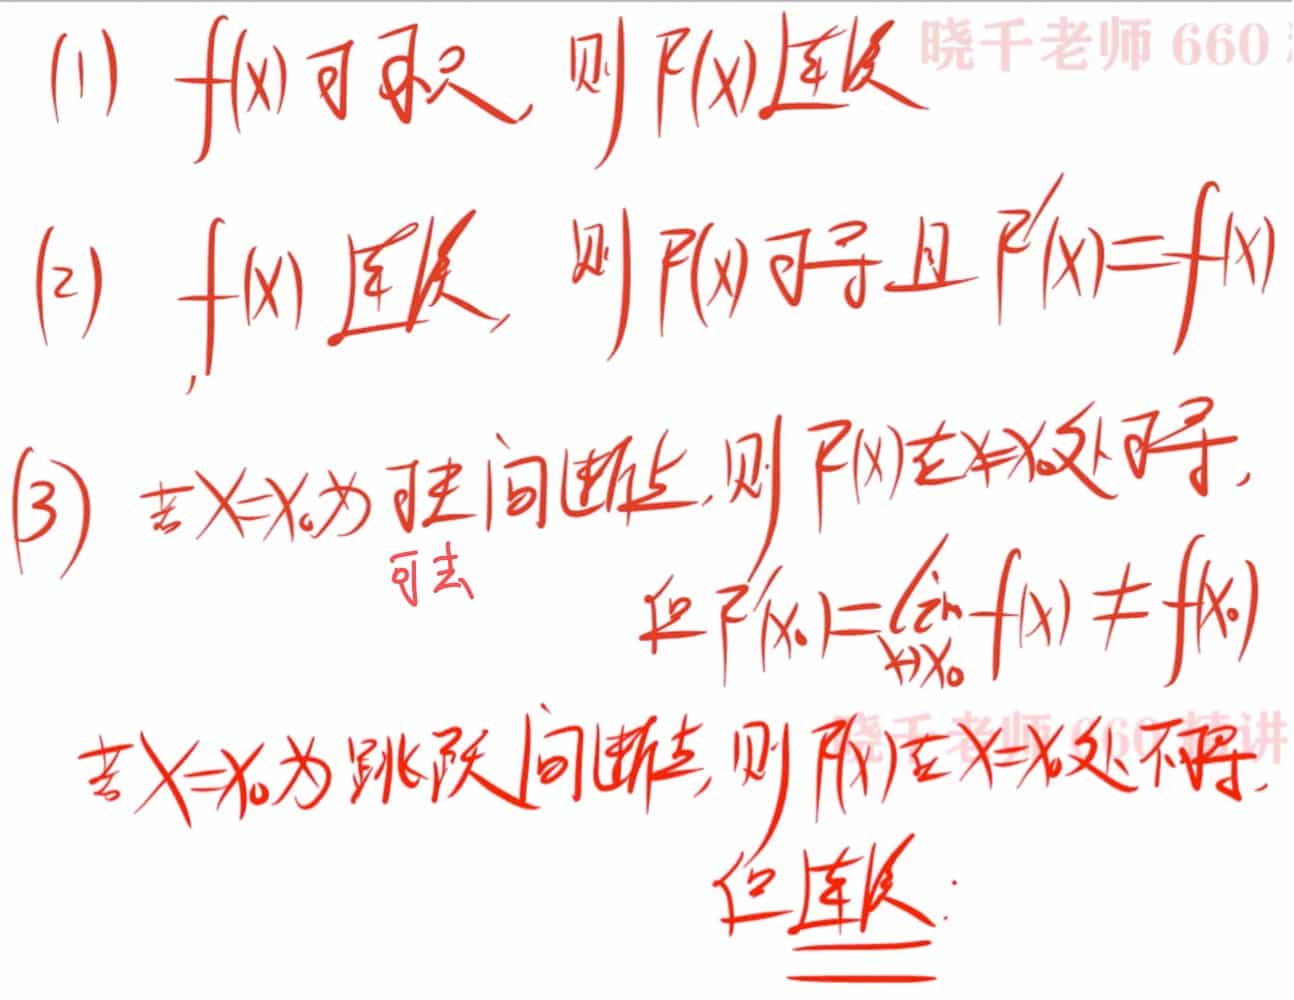 晓千老师 660
(1) f(x)可积,则F(x)连续
(2) f(x)连续,则F(x)可导且F'(x)=f(x)
(3) 若x=x₀为可去间断点,则F(x)在x=x₀处可导,
可去
但F'(x₀)=lim x→x₀ f(x)≠f(x₀)
晓千老师 660 精讲
若x=x₀为跳跃间断点,则F(x)在x=x₀处不可导,
但连续.